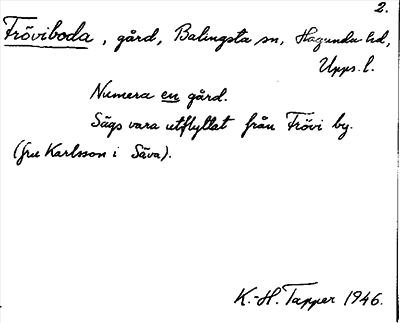 2.
Fröviboda, gård, Balingsta sn, Hagunda hd,
Upps. l.
Numera en gård.
Sägs vara utflyttat från Frövi by.
(fru Karlsson i Säva).
K.-H. Tapper 1946.